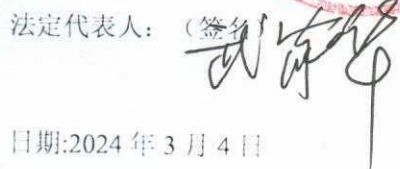 法定代表人：（签名）
日期:2024年3月4日